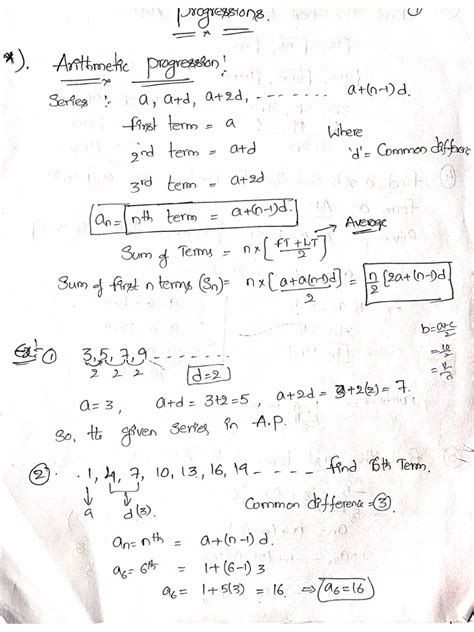 progressions. ①
*). Arithmetic progression:
Series : a, a+d, a+2d, - - - - - - - a+(n-1)d.
first term = a
Where
2nd term = a+d
'd' = Common differenc
3rd term = a+2d
an = nth term = a+(n-1)d.
Average
Sum of Terms = n×[FT+LT/2]
Sum of first n terms (Sn)= n×[a+a(n-1)d]/2 = n/2[2a+(n-1)d
b=a+c/2
Ex: ① 3,5,7,9 - - - - - -
2 2 2 d=2
a=3, a+d = 3+2=5, a+2d = 3+2(2) = 7.
So, the given series in A.P.
② 1, 4, 7, 10, 13, 16, 19 - - - - find 6th Term.
a d(3). Common difference = ③.
an=nth = a+(n-1)d.
a6=6th = 1+(6-1)3
a6 = 1+5(3) = 16. ⇒ a6=16